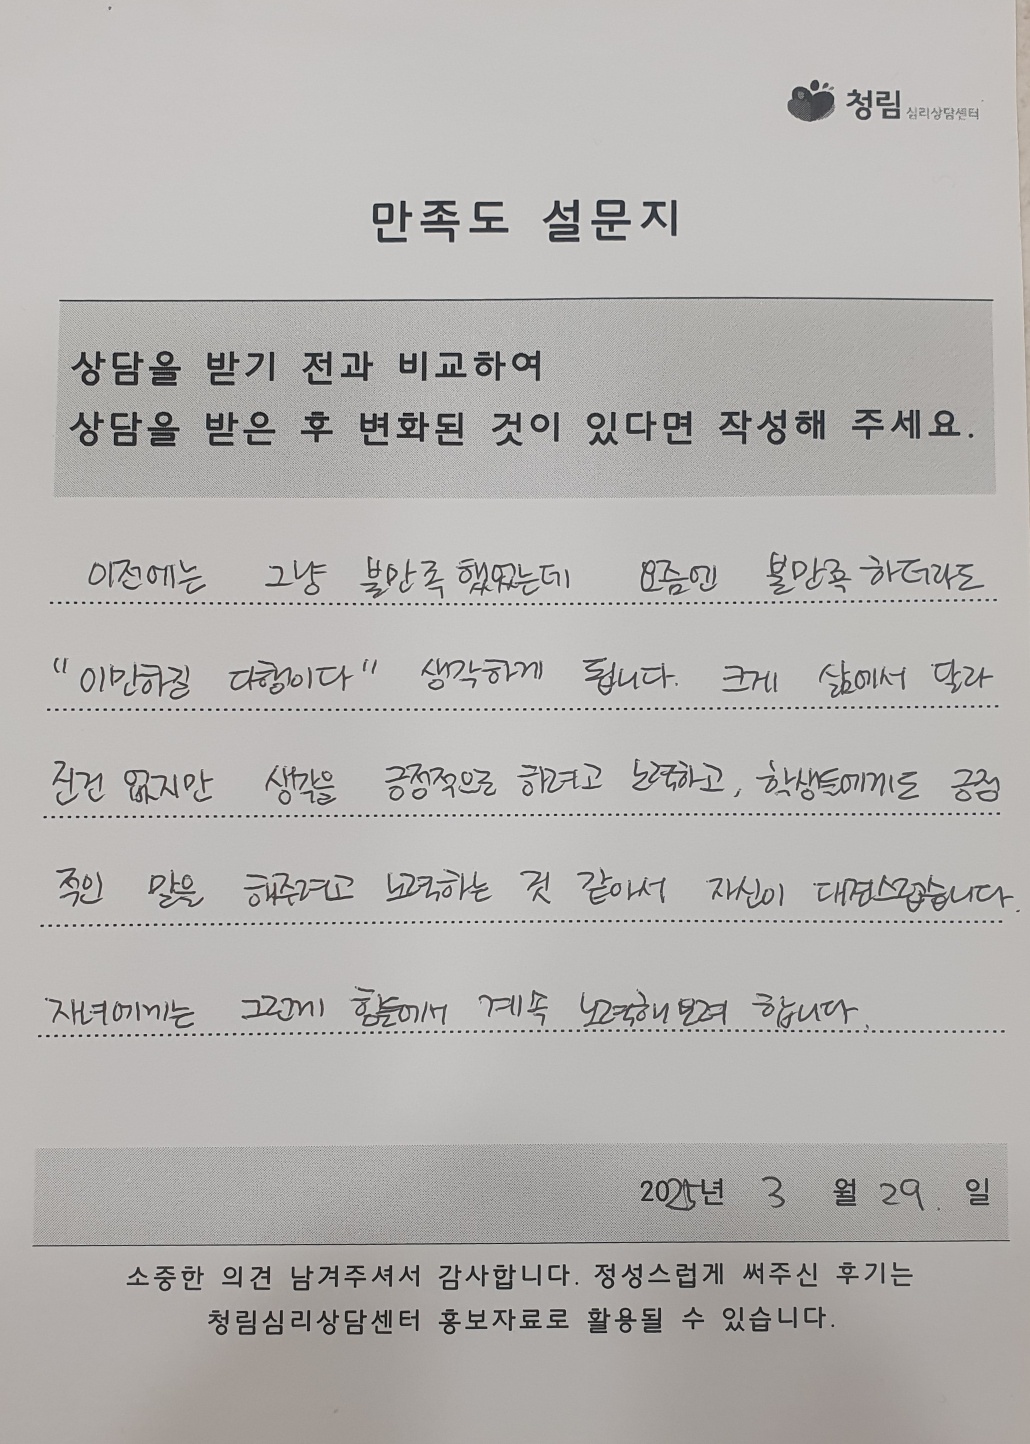 청림 심리상담센터
만족도 설문지
상담을 받기 전과 비교하여
상담을 받은 후 변화된 것이 있다면 작성해 주세요.
이전에는 그냥 불만족했었는데 요즘엔 불만족하더라도
"이만하길 다행이다" 생각하게 됩니다. 크게 삶에서 달라
진건 없지만 생각을 긍정적으로 하려고 노력하고, 학생들에게도 긍정
적인 말을 해주려고 노력하는 것 같아서 자신이 대견스럽습니다.
자녀에게는 그런게 힘들어서 계속 노력해보려 합니다.
2025년 3 월 29. 일
소중한 의견 남겨주셔서 감사합니다. 정성스럽게 써주신 후기는
청림심리상담센터 홍보자료로 활용될 수 있습니다.